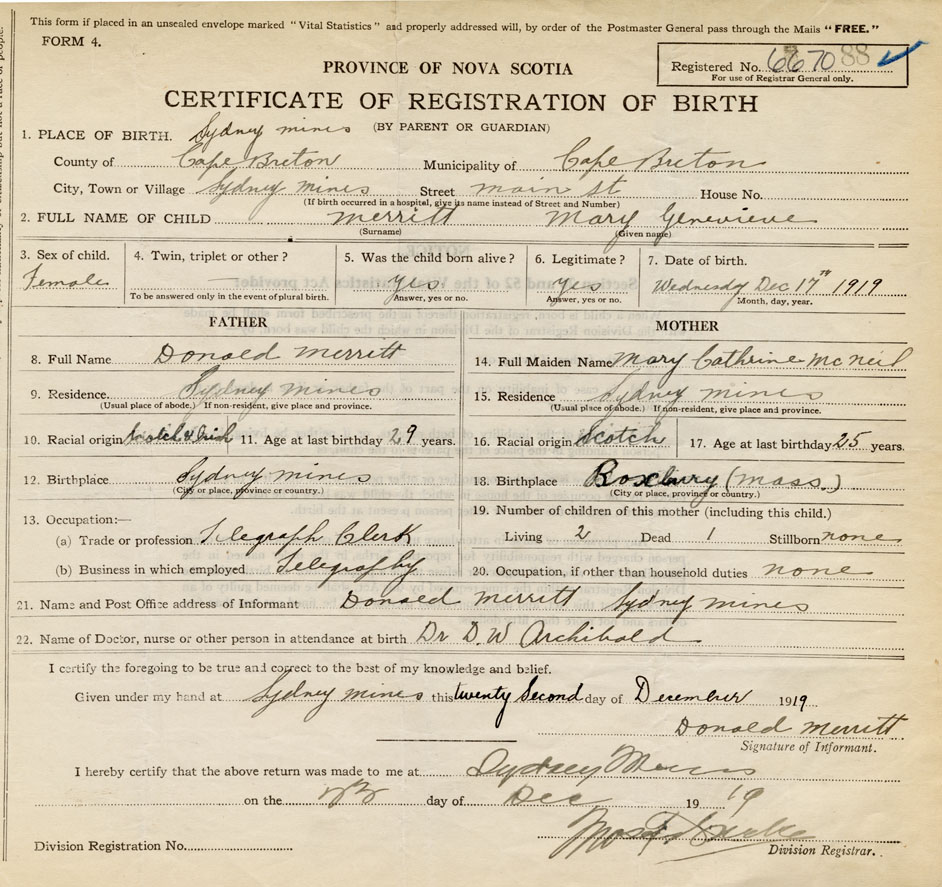 This form if placed in an unsealed envelope marked "Vital Statistics" and properly addressed will, by order of the Postmaster General pass through the Mails "FREE."
FORM 4.
Registered No. 667088
For use of Registrar General only.
PROVINCE OF NOVA SCOTIA
CERTIFICATE OF REGISTRATION OF BIRTH
(BY PARENT OR GUARDIAN)
1. PLACE OF BIRTH. Sydney mines
County of Cape Breton Municipality of Cape Breton
City, Town or Village Sydney mines Street main st House No.
(If birth occurred in a hospital, give its name instead of Street and Number)
2. FULL NAME OF CHILD merritt Mary Genevieve
(Surname) (Given name)
3. Sex of child. 4. Twin, triplet or other? 5. Was the child born alive? 6. Legitimate? 7. Date of birth.
Female Yes Yes Wednesday Dec 17th 1919
To be answered only in the event of plural birth. Answer, yes or no. Answer, yes or no. Month, day, year.
FATHER
8. Full Name Donald merritt
9. Residence. Sydney mines
(Usual place of abode.) If non-resident, give place and province.
10. Racial origin Scotch & Irish 11. Age at last birthday 29 years.
12. Birthplace Sydney mines
(City or place, province or country.)
13. Occupation:—
(a) Trade or profession Telegraph Clerk
(b) Business in which employed Telegraphy
MOTHER
14. Full Maiden Name Mary Cathrine mc neil
15. Residence Sydney mines
(Usual place of abode.) If non-resident, give place and province.
16. Racial origin Scotch 17. Age at last birthday 25 years.
18. Birthplace Roxbury (mass.)
(City or place, province or country.)
19. Number of children of this mother (including this child.)
Living 2 Dead 1 Stillborn none
20. Occupation, if other than household duties none
21. Name and Post Office address of Informant Donald merritt Sydney mines
22. Name of Doctor, nurse or other person in attendance at birth Dr D.W Archibald
I certify the foregoing to be true and correct to the best of my knowledge and belief.
Given under my hand at Sydney mines this twenty Second day of December 1919
Donald merritt
Signature of Informant.
I hereby certify that the above return was made to me at Sydney Mines
on the day of Dec 19 19
Division Registration No.
Division Registrar.